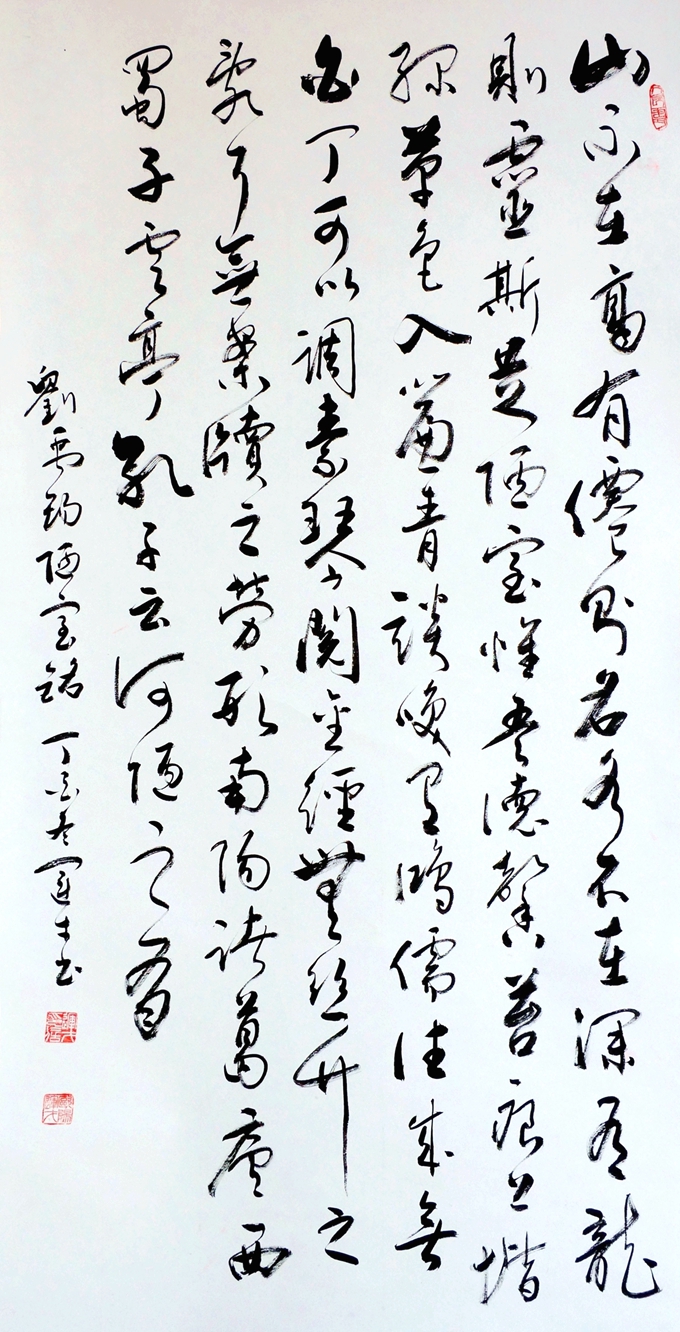 山不在高有僊則名水不在深有龍
則靈斯是陋室惟吾德馨苔痕上堦
綠草色入簾青談咲有鴻儒往來無
白丁可以調素琴閱金經無絲竹之
亂耳無案牘之勞形南陽諸葛廬西
蜀子雲亭孔子云何陋之有
劉禹錫陋室銘丁酉冬運士书